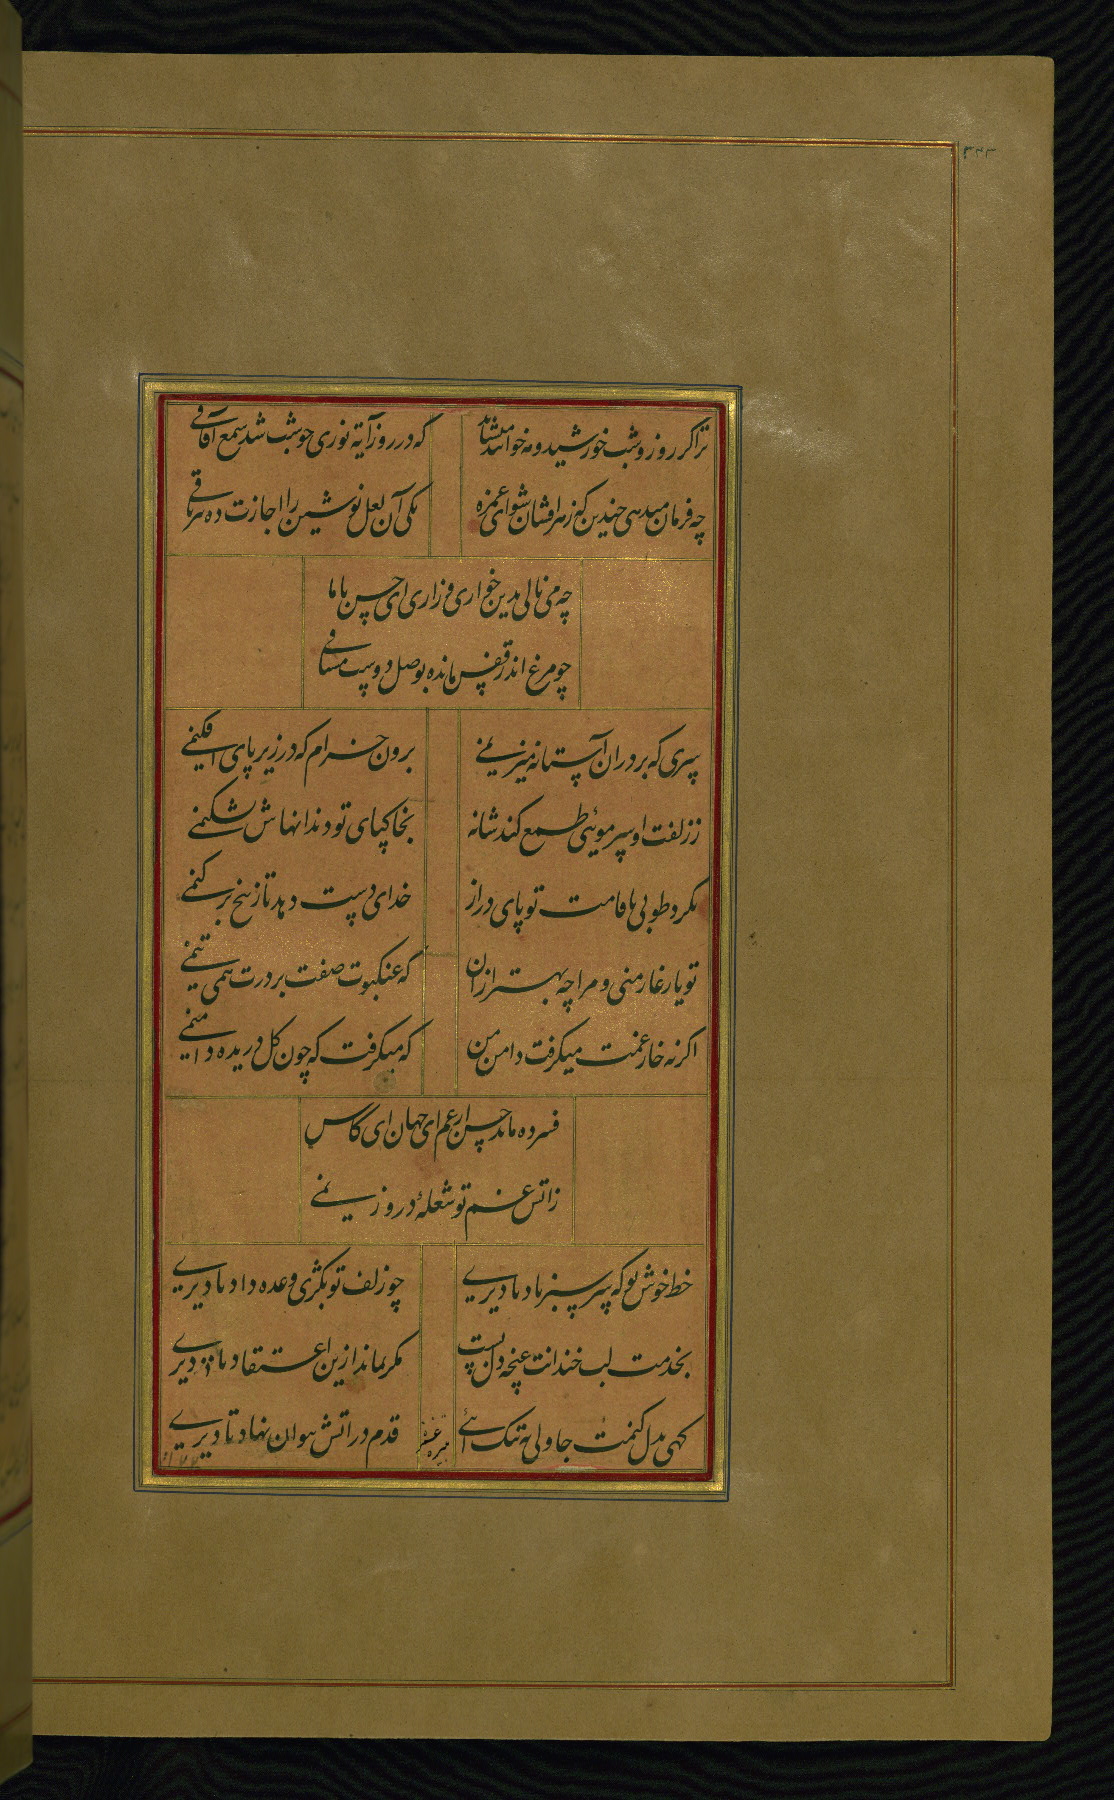 ترا گر روز و شب خورشید و مه خوانند میشاید که در روز آیه نوری چو شب شد شمع آفاقی
چه فرمان میدهی چندین که زهر افشان شو ای غمزه یکی آن لعل نوشین را اجازت ده بتریاقی
چه می نالی بدین خواری و زاری ای حسن باما
چو مرغ اندر قفس مانده بوصل دوست مشتاقی
سری که بر در ان آستانه میزنمی برون خرام که در زیر پای افکنمی
ز زلفت او سر موئی طمع کند شانه بخاکپای تو دندانهاش بشکنمی
مکر د طوبی با قامت تو پای دراز خدای دست دهد تاز بیخ برکنمی
تو یار غار منی و مرا چه بهتر ازان که عنکبوت صفت بر درت همی تنمی
اکر نه خار غمت میکرفت دامن من که میکرفت که چون کل دریده دامنمی
فسرده ماند حسن از غم ای جهان ای کاش
ز اتش غم تو شعلهٔ درو زنمی
خط خوش تو که سر سبز باد تا دیری چو زلف تو بکژی وعده داد ما دیری
بخدمت لب خندانت غنچه دل بست مکر بماند ازین اعتقاد ما دیری
کهی بدل کنمت جا ولی نه تنک ائی قدم در اتش سوان نهاد تا دیری